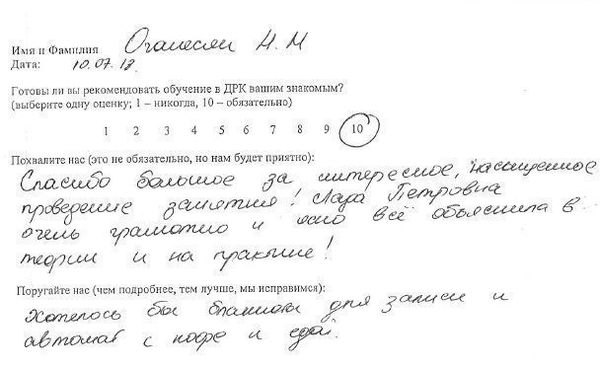 Имя и Фамилия Оганесян Н. М
Дата: 10.07.13.
Готовы ли вы рекомендовать обучение в ДРК вашим знакомым?
(выберите одну оценку; 1 – никогда, 10 – обязательно)
1 2 3 4 5 6 7 8 9 10
Похвалите нас (это не обязательно, но нам будет приятно):
Спасибо большое за интересное, насыщенное
проведение занятия! Лара Петровна
очень грамотно и ясно всё объяснила в
теории и на практике!
Поругайте нас (чем подробнее, тем лучше, мы исправимся):
Хотелось бы бланки для записи и
автомат с кофе и едой.